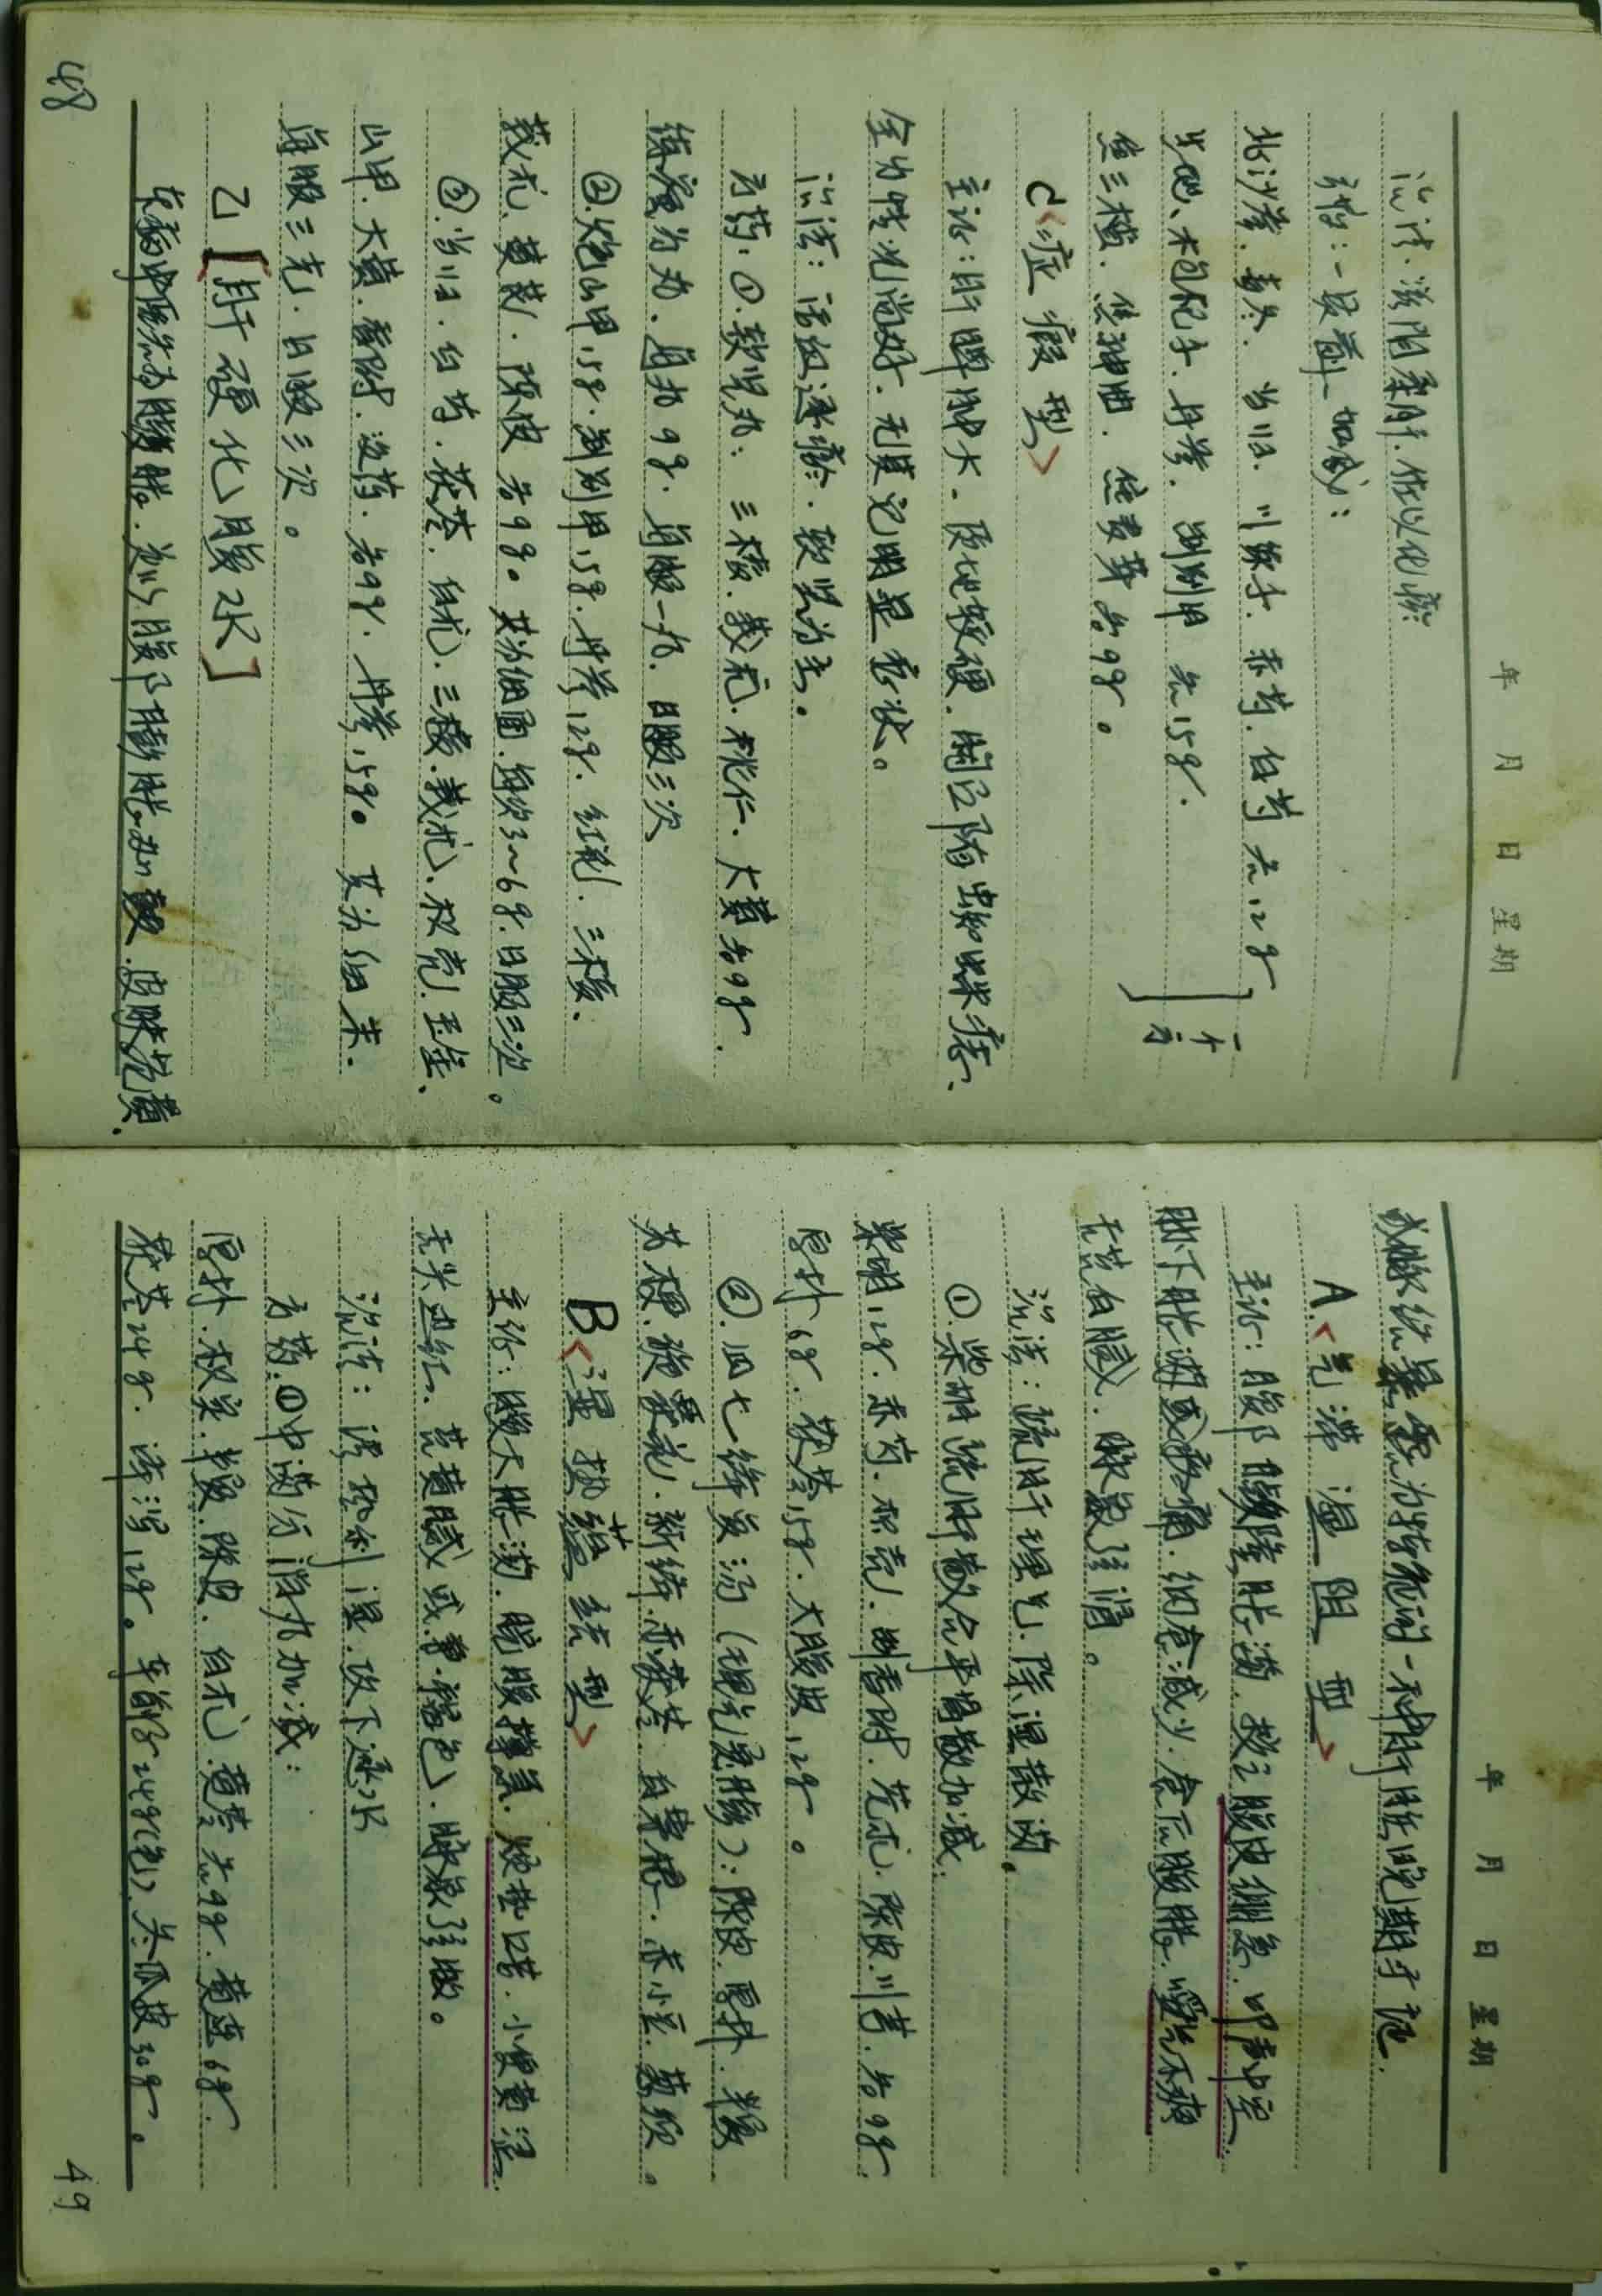 年 月 日 星期
治法:滋阴柔肝,佐以化瘀
药:一贯煎加减:
北沙参、麦冬、当归、川楝子、赤芍、白芍各12g
生地、枸杞子、丹参、制别甲各15g.
焦三楂、焦神曲、焦麦芽各9g。
一方
C<症瘕型>
主证:肝脾肿大、质地较硬、面色暗 蜘蛛痣、
全身情况尚好、无其它明显症状。
治法:活血逐瘀、软坚为主。
方药:①.软坚丸:三棱、莪术、桃仁、大黄各9g.
炼蜜为丸、每丸9g.每服一丸、日服三次
②.炮山甲15g.制别甲15g.丹参12g.红花、三棱、
莪术、黄芪、陈皮各9g。共为细面、每次3~6g.日服三次。
③.当归、白芍、茯苓、白术、三棱、莪术、枳壳、玉金、
山甲、大黄、香附、没药、各9g.丹参15g。共为细末.
每服三克.日服三次。
乙[肝硬化腹水]
本病中医称为臌胀.是以腹部膨胀如鼓.皮肤苍黄.
48
年 月 日 星期
或脉络暴露为特征的一种肝脏晚期于症.
A.<气滞湿阻型>
主证:腹部膨隆胀满、按之腹皮绷急、叩声中空、
胁下胀满或疼痛、纳食减少、食后腹胀、嗳气不爽
舌苔白腻、脉象弦滑。
治法:疏肝理气、除湿散满。
①.柴胡疏肝散合平胃散加减.
柴胡12g.赤芍、枳壳、制香附、苍术、陈皮、川芎、各9g.
厚朴6g.茯苓15g.大腹皮12g。
②.四七绛复汤(理气宽膨):陈皮、厚朴、半夏
苏梗、旋复花、新绛、赤茯苓、白茅根、赤小豆、葛须。
B<湿热蕴结型>
主证:腹大胀满、脘腹撑急、烦热口苦、小便黄涩、
舌尖边红、苔黄腻或兼褐色、脉象弦数。
治法:清热利湿、攻下逐水
方药:①中满分消丸加减:
厚朴、枳实、半夏、陈皮、白术、黄芩各9g.黄连6g.
茯苓24g.泽泻12g。车前子24g(包)、冬瓜皮30g。
49